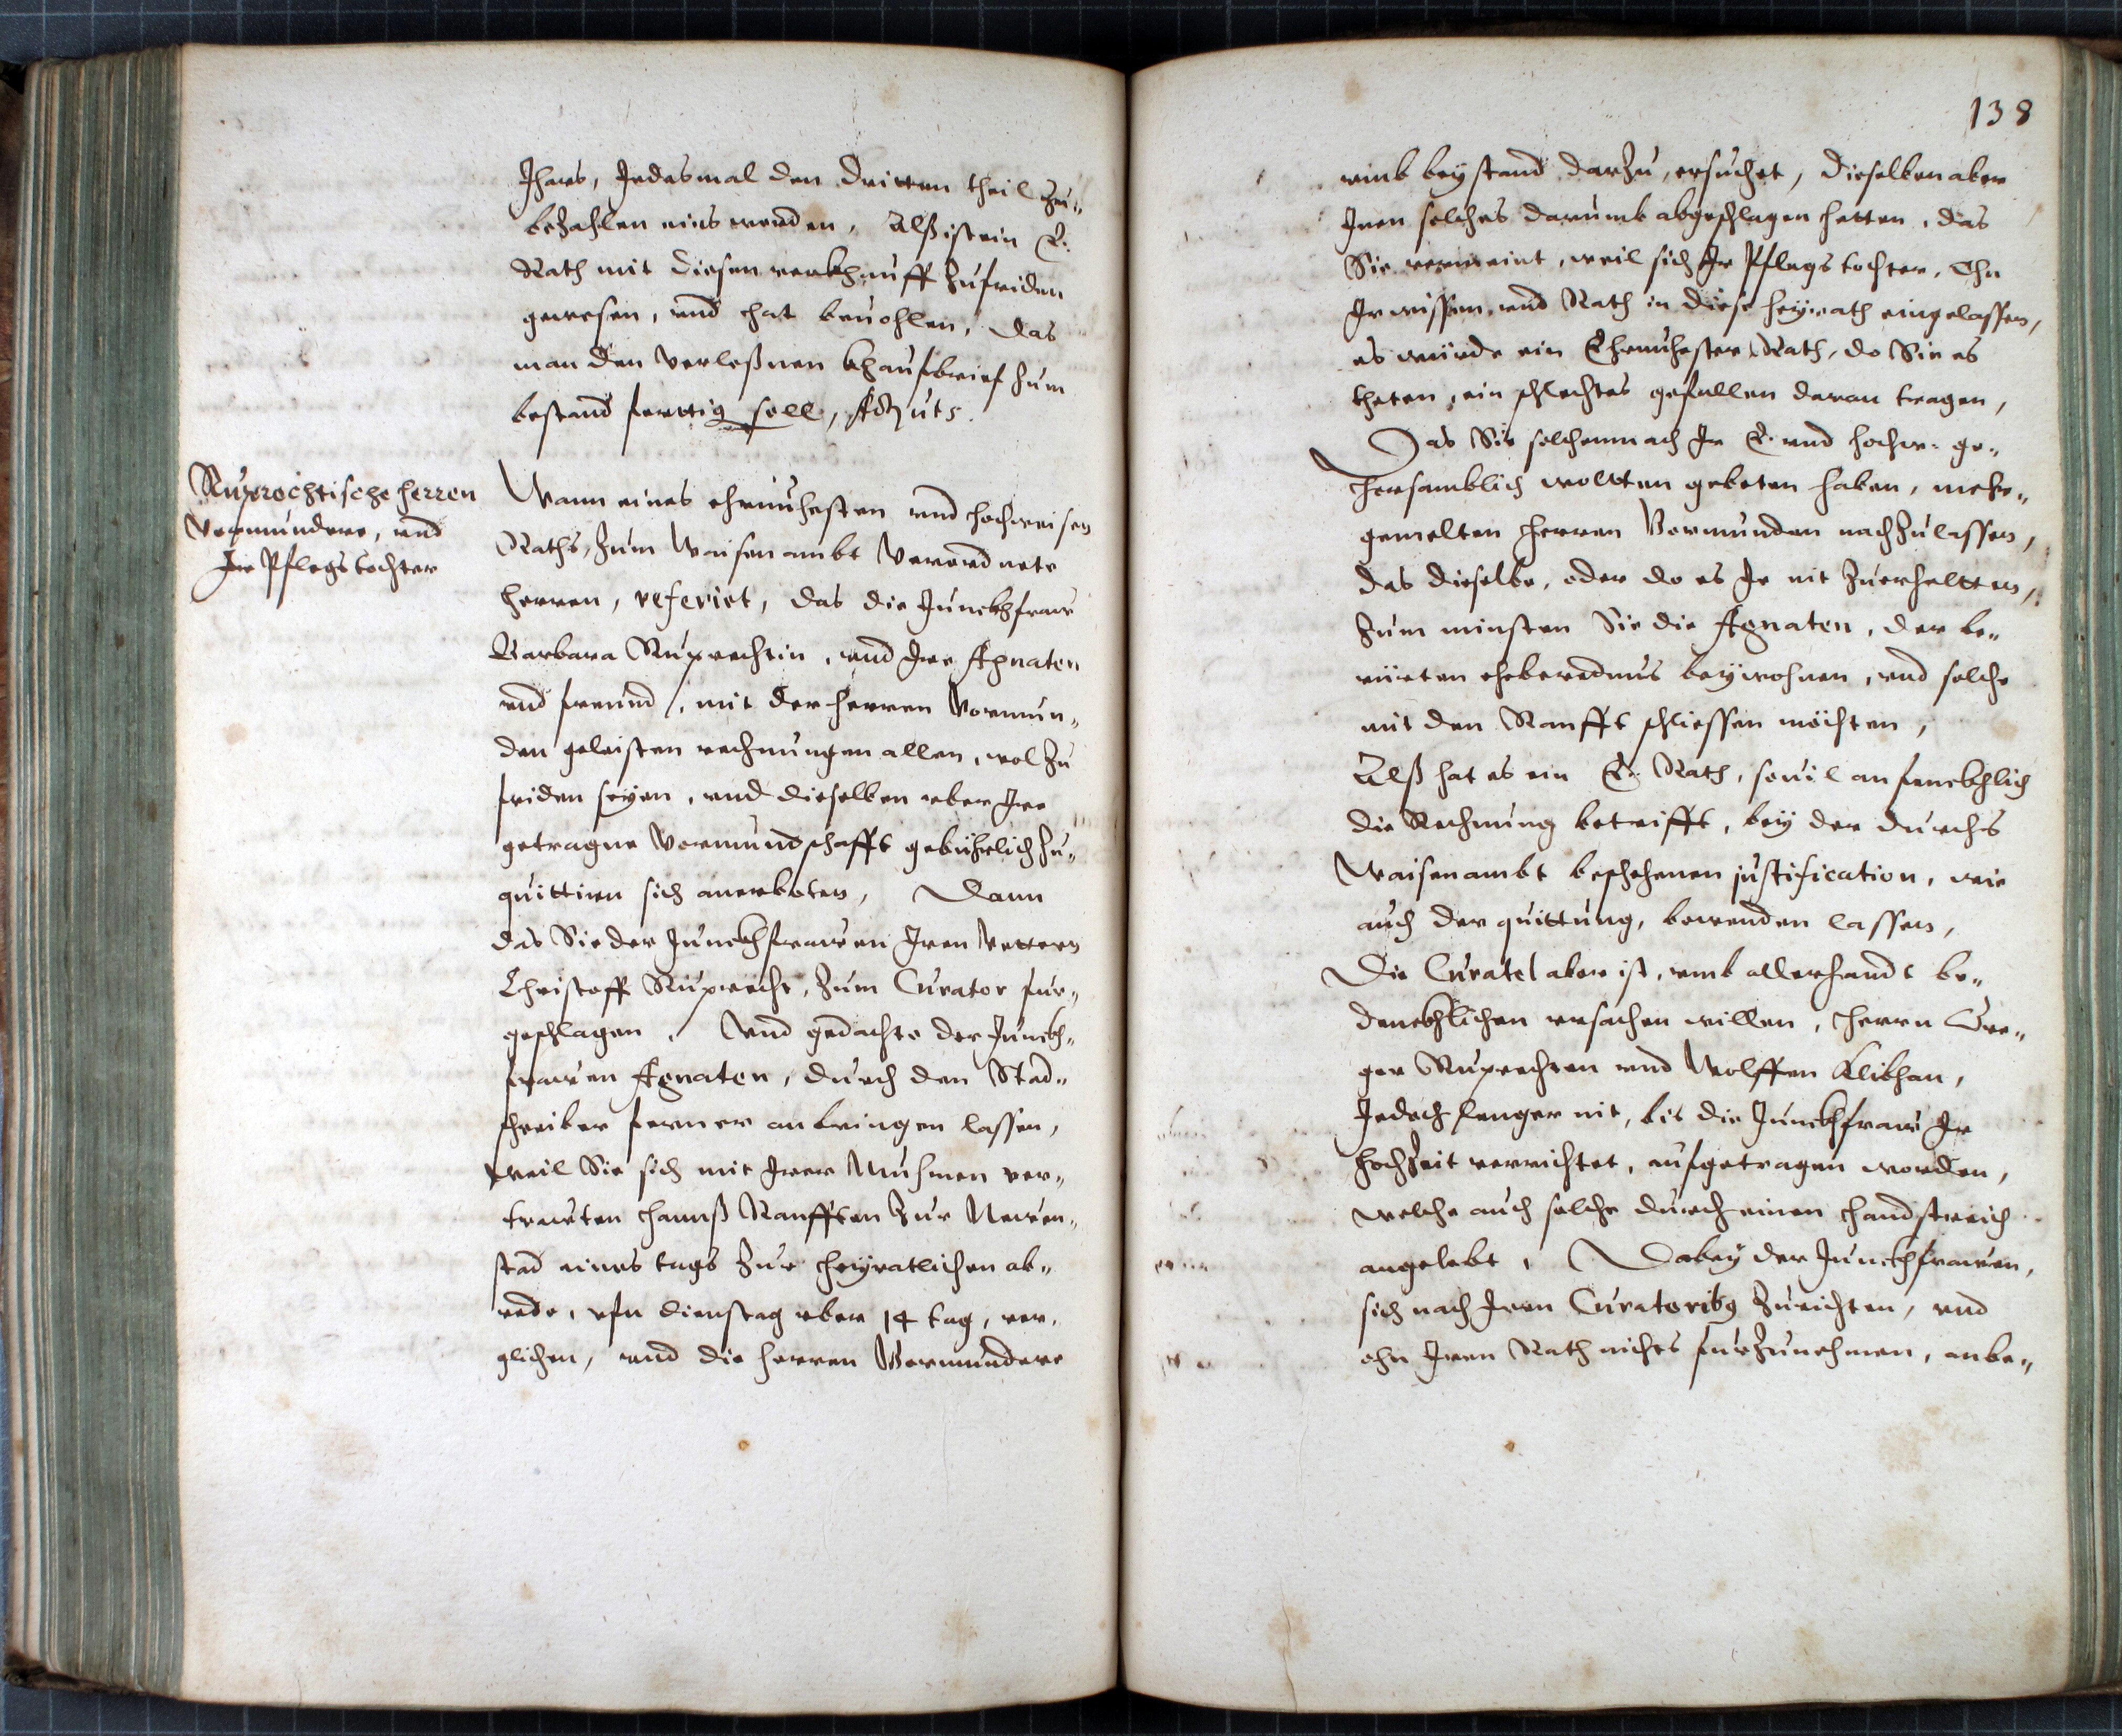 Jhars, Jedesmal den dritten theil zu„
bezahlen eins worden, Alß ist ein E:
Rath mit diesem verkhauff zufriden
gewesen, vnd hat beuohlen, das
man den verleßnen khaufbrief zum
bestand fertig soll, Act: uts.
Ruprechtische herren
Vormundere, vnd
Ire Pflegstochter
Wann eines ehrnuhesten vnd hochweisen
Raths, zum Waisenambt Verordnete
herren, referiet, das die Junckhfraw
Barbara Ruprechtin, vnd Ire Agnaten
vnd freund, mit der herren Vormun„
den geleisten rechnungen allen, wol zu
friden seyen, vnd dieselben vber Ire
getragne Vormundschafft gebührlich zu„
quittirn sich anerboten, Dann
das Sie der Junckhfrawen Iren Vettern
Christoff Ruprecht, zum Curator fur„
geschlagen, Vnd gedachte der Junckh„
frawen Agnaten, durch den Stad„
schreiber ferner anbringen lassen,
weil Sie sich mit Irer Muhmen ver„
trawten hannß Ranfften zur Newen„
stad eines tags zur heyratlichen ab„
rede, vfn dienstag vber 14 tag, ver„
glichen, vnd die herren Vormundere
138
vmb beystand darzu, ersuchet, dieselben aber
Inen solches darumb abgeschlagen hetten, das
Sie vermeint, weil sich Ir Pflegstochter, Ohn
Ir wissen, vnd Rath in diese heyrath eingelassen,
es würde ein Ehrnuhester Rath, do Sie es
theten, ein schlechtes gefallen daran tragen,
Das Sie solchemnach Ir E. vnd hochw: ge„
horsamblich wollten gebeten haben, mehr„
gemelten herren Vormunden nachzulassen,
das dieselbe, oder do es Je nit zuerhalten,
zum minsten Sie die Agnaten, der be„
rürten eheberednus beywohnen, vnd solche
mit den Ranfft schliessen möchten,
Alß hat es ein E: Rath, souil anfenckhlich
die Rechnung betrifft, bey der durchs
Waisenambt beschehenen justification, wie
auch der quittung, bewenden lassen,
Die Curatel aber ist, vmb allerhandt be„
denckhlichen vrsachen willen, herrn Gre„
gor Ruprechten vnd Wolffen Klibhan,
Jedoch lenger nit, bis die Junckhfraw Ir
hochzeit verrichtet, aufgetragen worden,
welche auch solche durch einen handstreich
angelobt, Dabey der Junckhfrawen,
sich nach Iren Curatorib9 zurichten, vnd
ohn Iren Rath nichts furzunehmen, anbe„